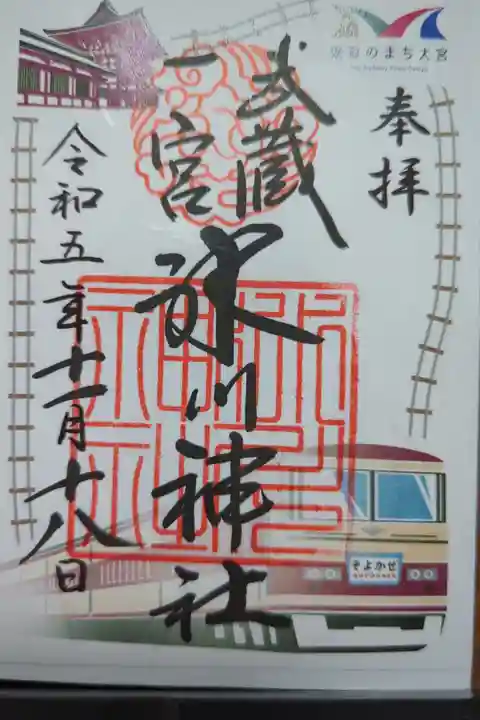 鉄道のまち大宮
The Railway Town Omiya
奉拝
武蔵
一宮
氷川神社
令和五年十一月十八日
そよかぜ